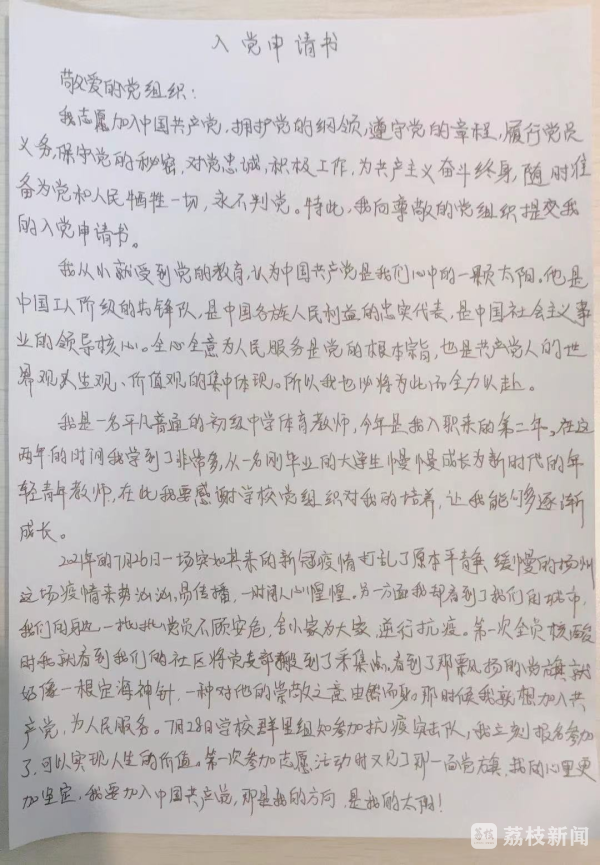 入党申请书
敬爱的党组织：
我志愿加入中国共产党，拥护党的纲领，遵守党的章程，履行党员
义务，保守党的秘密，对党忠诚，积极工作，为共产主义奋斗终身，随时准
备为党和人民牺牲一切，永不判党。特此，我向尊敬的党组织提交我
的入党申请书。
我从小就受到党的教育，认为中国共产党是我们心中的一颗太阳。他是
中国工人阶级的先锋队，是中国各族人民利益的忠实代表，是中国社会主义事
业的领导核心。全心全意为人民服务是党的根本宗旨，也是共产党人的世
界观、人生观、价值观的集中体现。所以我也必将为此而全力以赴。
我是一名平凡普通的初级中学体育教师，今年是我入职来的第二年。在这
两年的时间我学到了非常多，从一名刚毕业的大学生慢慢成长为新时代的年
轻青年教师，在此我要感谢学校党组织对我的培养，让我能够逐渐
成长。
2021年的7月26日一场突如其来的新冠疫情打乱了原本平静、缓慢的扬州
这场疫情来势汹汹，易传播，一时间人心惶惶。另一方面我却看到了我们的城市，
我们的身边一批批党员不顾安危，舍小家为大家，逆行抗疫。第一次全员核酸
时我就看到我们的社区将党支部搬到了采集点，看到了那飘扬的党旗就
好像一根定海神针，一种对他的崇敬之意由然而身。那时候我就想加入共
产党，为人民服务。7月28日学校群里组知参加抗疫突击队，我立刻报名参加
了，可以实现人生的价值。第一次参加志愿活动时又见了那一面党旗，我的心里更
加坚定，我要加入中国共产党，那是我的方向，是我的太阳！
荔枝新闻